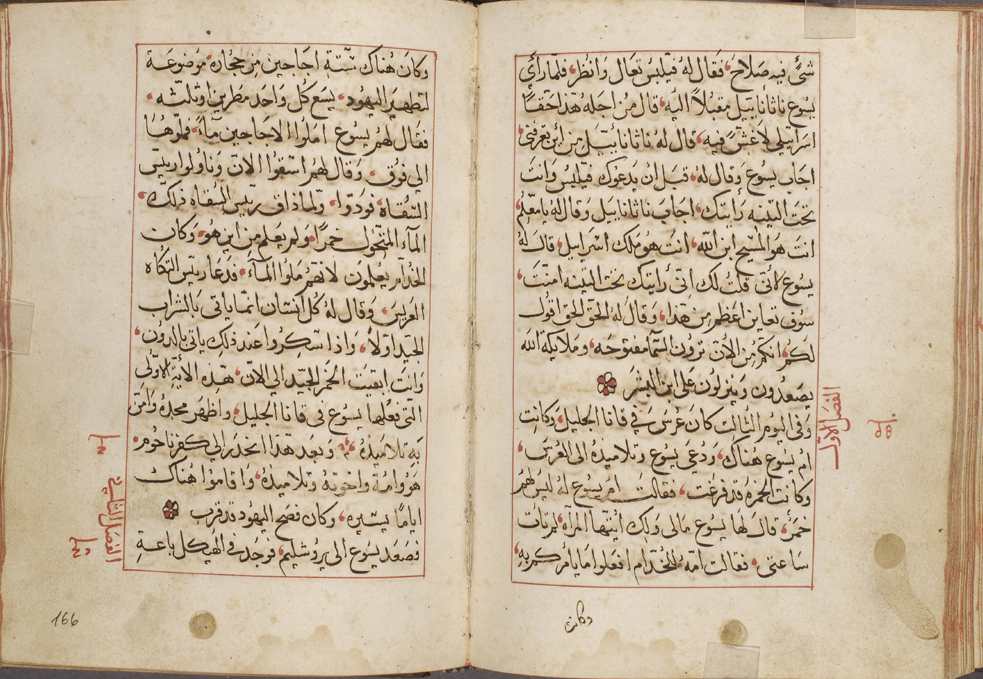 شيٌ فيه صلاح، فقال له فيلبس تعال وانظر، فلما راي
يسوع ناثانابيل مقبلاً اليه، قال من اجله هذا حقًا
اسراييلي لا غش فيه، قال له ناثانابيل من اين تعرفني
اجاب يسوع وقال له، قبل ان يدعوك فيلبس وانت
تحت التينه رايتك، اجاب ناثانابيل وقال له يا معلم،
انت هو المسيح ابن الله، انت هو ملك اسراييل، قال له
يسوع لاني قلت لك اني رايتك تحت التينه امنت،
سوف تعاين اعظم من هذا، وقال له الحق الحق اقول
لكم، انكم من الان ترون السما مفتوحه، وملايكة الله
يصعدون وينزلون على ابن البشر
وفي اليوم الثالث كان عرس في قانا الجليل، وكانت
ام يسوع هناك، ودعي يسوع وتلاميذه الى العرس،
وكانت الخمره قد فرغت، فقالت ام يسوع له ليس لهم
خمر، قال لها يسوع مالي ولك ايتها المراه، لم تات
ساعتي، فقالت امه للخدام افعلوا ما يامركم به،
الفصل الاول
وكان
وكان هناك ستة اجاجين من حجاره، موضوعة
لتطهير اليهود، يسع كل واحد مطرين او ثلثه،
فقال لهم يسوع املوا الاجاجين مآء، فملوها
الي فوق، وقال لهم استقوا الان وناولوا رييس
السقاه، فودوا، ولما ذاق رييس السقاه ذلك،
المآء المتحول خمرًا، ولم يعلم من اين هو، وكان
الخدام يعلمون لانهم ملوا المآء، فدعا رييس التكاه
العريس، وقال له كل انسان انما ياتي بالشراب
الجيد اولاً، واذا سكروا عند ذلك ياتي بالدون،
وانت ابقيت الخمر الجيد الي الان، هذه الايه الاولى
التي فعلها يسوع في قانا الجليل، واظهر مجده وامن
به تلاميذه، وبعد هذا انحدر الي كفرناحوم،
هو وامه واخوته وتلاميذه، واقاموا هناك
اياما يسيره، وكان فصح اليهود قد قرب
فصعد يسوع الى يروشليم، فوجد في الهيكل باعة
166